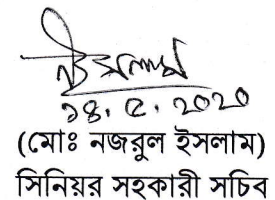 ১৪. ৫. ২০২০
(মোঃ নজরুল ইসলাম)
সিনিয়র সহকারী সচিব